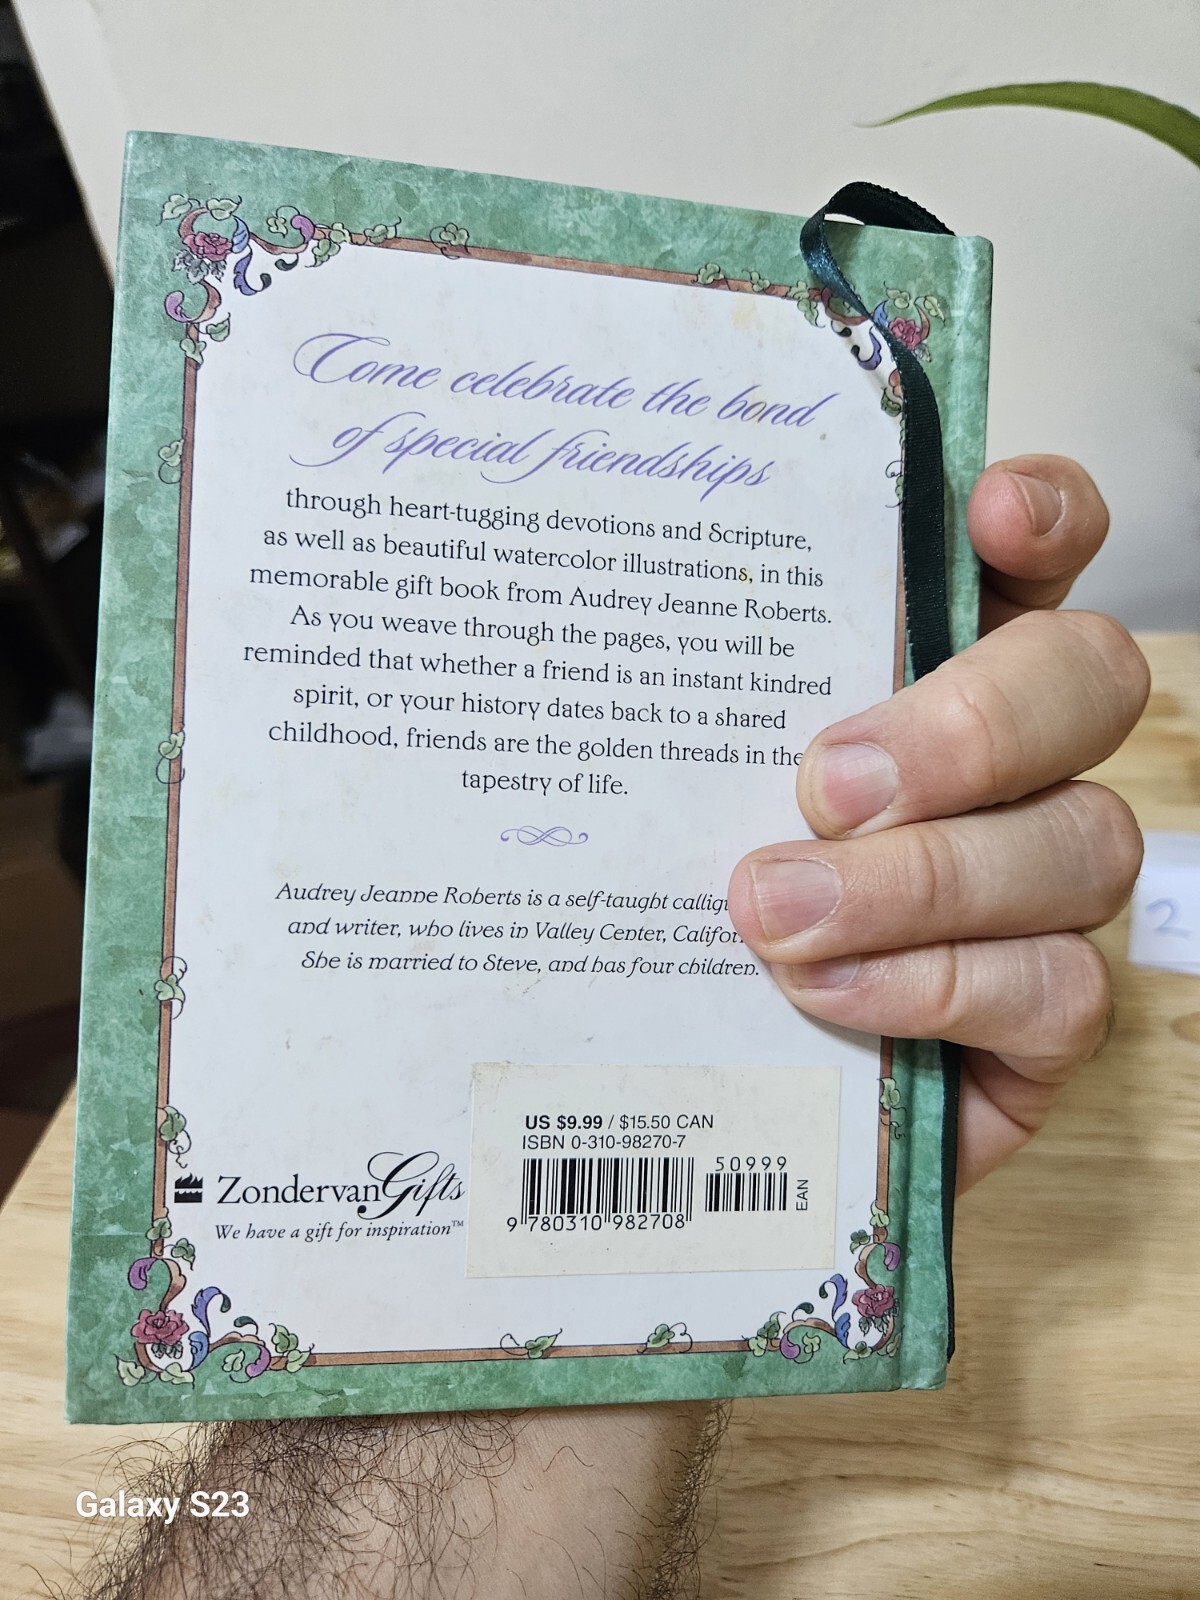 Come celebrate the bond
of special friendships
through heart-tugging devotions and Scripture,
as well as beautiful watercolor illustrations, in this
memorable gift book from Audrey Jeanne Roberts.
As you weave through the pages, you will be
reminded that whether a friend is an instant kindred
spirit, or your history dates back to a shared
childhood, friends are the golden threads in the
tapestry of life.
Audrey Jeanne Roberts is a self-taught
and writer, who lives in Valley Center,
She is married to Steve, and has four children.
US $9.99 / $15.50 CAN
ISBN 0-310-98270-7
50999
EAN
9 780310 982708
ZondervanGifts
We have a gift for inspiration™
2
Galaxy S23